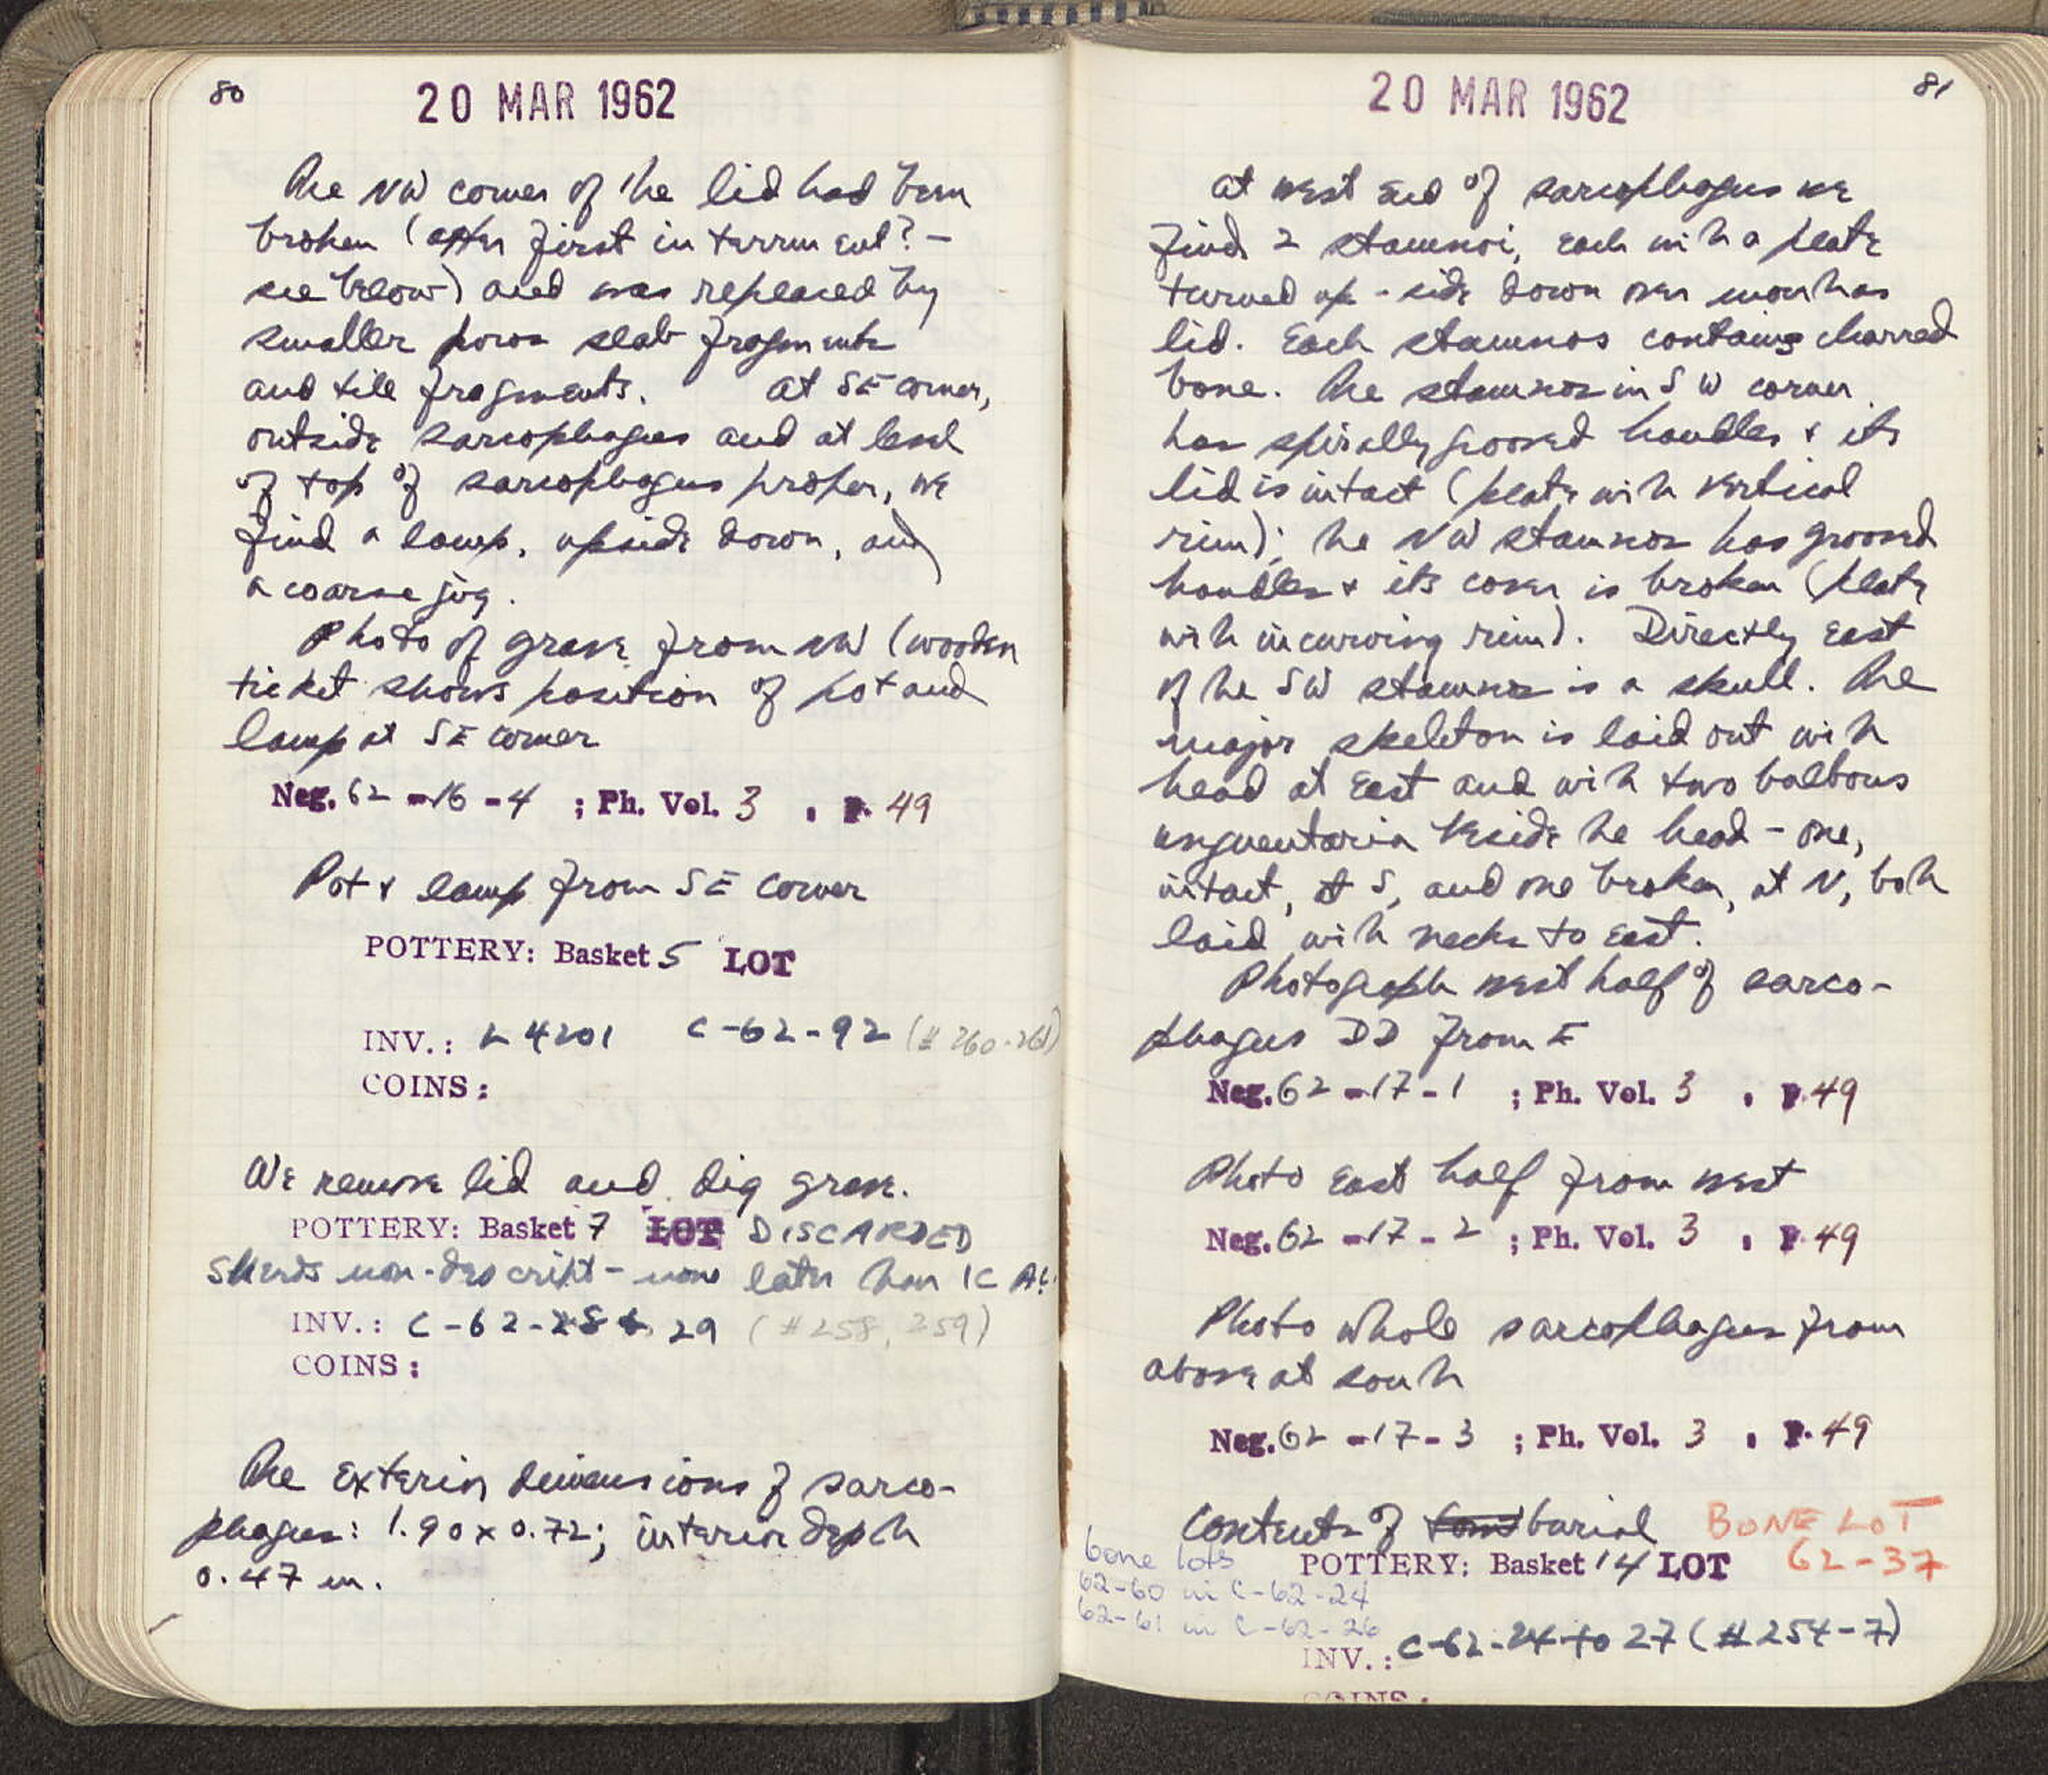 80
20 MAR 1962
The NW corner of the lid had been
broken (after first interrment? -
see below) and was replaced by
smaller poros slab fragments
and tile fragments. At SE corner,
outside sarcophagus and at level
of top of sarcophagus proper, we
find a lamp, upside down, and
a coarse jug.
Photo of grave from NW (wooden
ticket shows position of pot and
lamp at SE corner
Neg. 62-16-4 ; Ph. Vol. 3 , P. 49
Pot & lamp from SE corner
POTTERY: Basket 5 LOT
INV.: L 4201 C-62-92 (# 260-261)
COINS:
We remove lid and dig grave.
POTTERY: Basket 7 LOT DISCARDED
Sherds non-descript - none later than 1C AC.
INV.: C-62-28 & 29 (#258, 259)
COINS:
The exterior dimensions of sarco-
phagus: 1.90 x 0.72; interior depth
0.47 m.
81
20 MAR 1962
At west end of sarcophagus we
find 2 stamnoi, each with a plate
turned up-side down over mouth as
lid. Each stamnos contains charred
bone. The stamnos in SW corner
has spirally grooved handles & its
lid is intact (plate with vertical
rim); the NW stamnos has grooved
handles & its cover is broken (plate
with incurving rim). Directly east
of the SW stamnos is a skull. The
major skeleton is laid out with
head at East and with two bulbous
unguentaria beside the head - one,
intact, at S, and one broken, at N, both
laid with necks to east.
Photograph west half of sarco-
phagus DD from E
Neg. 62-17-1 ; Ph. Vol. 3 , P. 49
Photo East half from west
Neg. 62-17-2 ; Ph. Vol. 3 , P. 49
Photo whole sarcophagus from
above at south
Neg. 62-17-3 ; Ph. Vol. 3 , P. 49
Contents of tomb burial BONE LOT
62-37
POTTERY: Basket 14 LOT
bone lots
62-60 in C-62-24
62-61 in C-62-26
INV.: C-62-24 to 27 (#254-7)
COINS: